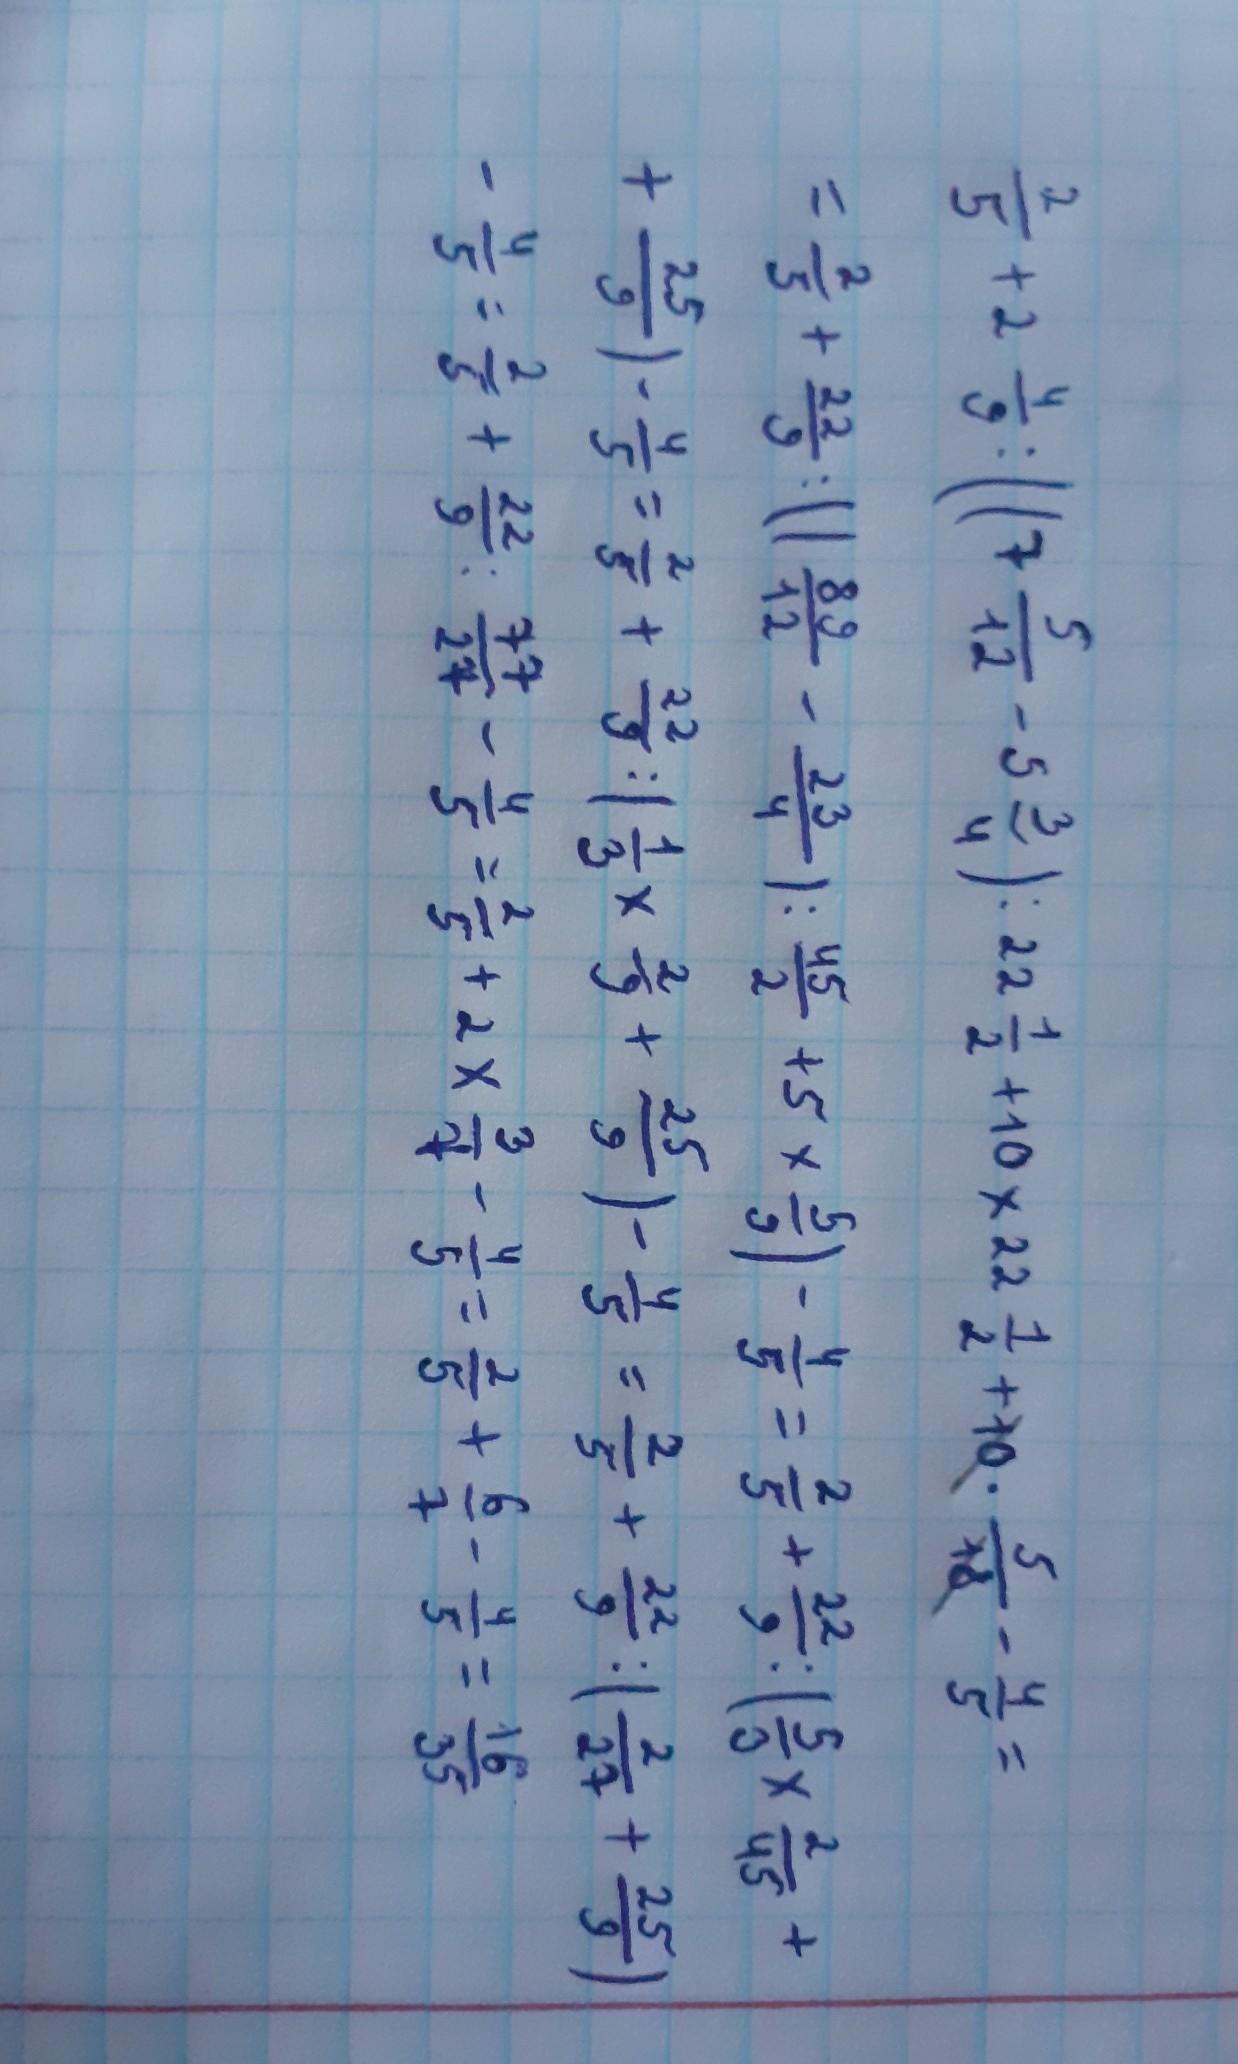 2/5 + 2 4/9 : ((7 5/12 - 5 3/4) : 22 1/2 + 10 × 22 1/2 + 10 · 5/18 - 4/5 =
= 2/5 + 22/9 : ((89/12 - 23/4) : 45/2 + 5 × 5/9) - 4/5 = 2/5 + 22/9 : (5/3 × 2/45 +
+ 25/9) - 4/5 = 2/5 + 22/9 : (1/3 × 2/9 + 25/9) - 4/5 = 2/5 + 22/9 : (2/27 + 25/9)
- 4/5 = 2/5 + 22/9 : 77/27 - 4/5 = 2/5 + 2 × 3/7 - 4/5 = 2/5 + 6/7 - 4/5 = 16/35